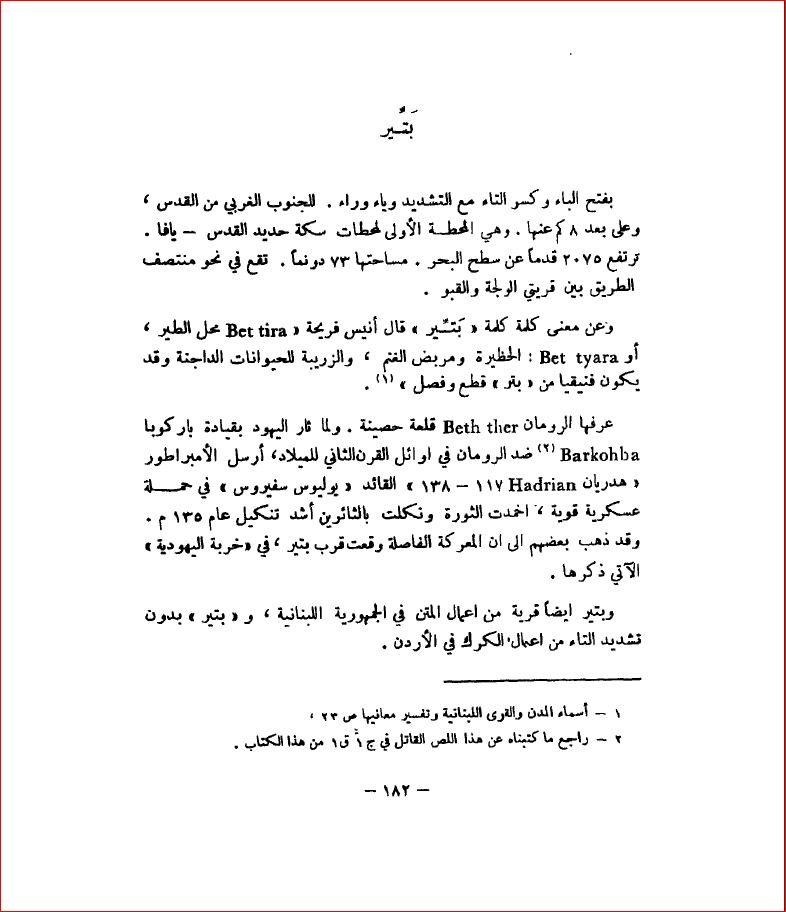 بَتِّير
بفتح الباء وكسر التاء مع التشديد وياء وراء . للجنوب الغربي من القدس ،
وعلى بعد ٨ كم عنها . وهي المحطة الأولى لمحطات سكة حديد القدس – يافا .
ترتفع ٢٠٧٥ قدماً عن سطح البحر . مساحتها ٧٣ دونماً . تقع في نحو منتصف
الطريق بين قريتي الولجة والقبو .
وعن معنى كلمة كلمة « بَتِّير » قال أنيس فريحة « Bet tira محل الطير ،
أو Bet tyara : الحظيرة ومربض الغنم ، والزريبة للحيوانات الداجنة وقد
يكون فنيقيا من « بتر » قطع وفصل » (١) .
عرفها الرومان Beth ther قلعة حصينة . ولما ثار اليهود بقيادة باركوبا
Barkohba (٢) ضد الرومان في اوائل القرن الثاني للميلاد، أرسل الأمبراطور
« هدريان Hadrian ١١٧ – ١٣٨ » القائد « يوليوس سفيروس » في حملة
عسكرية قوية ، اخمدت الثورة ونكلت بالثائرين أشد تنكيل عام ١٣٥ م .
وقد ذهب بعضهم الى ان المعركة الفاصلة وقعت قرب بتير ، في « خربة اليهودية »
الآتي ذكرها .
وبتير ايضاً قرية من اعمال المتن في الجمهورية اللبنانية ، و « بتير » بدون
تشديد التاء من اعمال الكرك في الأردن .
١ – أسماء المدن والقرى اللبنانية وتفسير معانيها ص ٢٣ ،
٢ – راجع ما كتبناه عن هذا اللص القاتل في ج ١ ق ١ من هذا الكتاب .
– ١٨٢ –